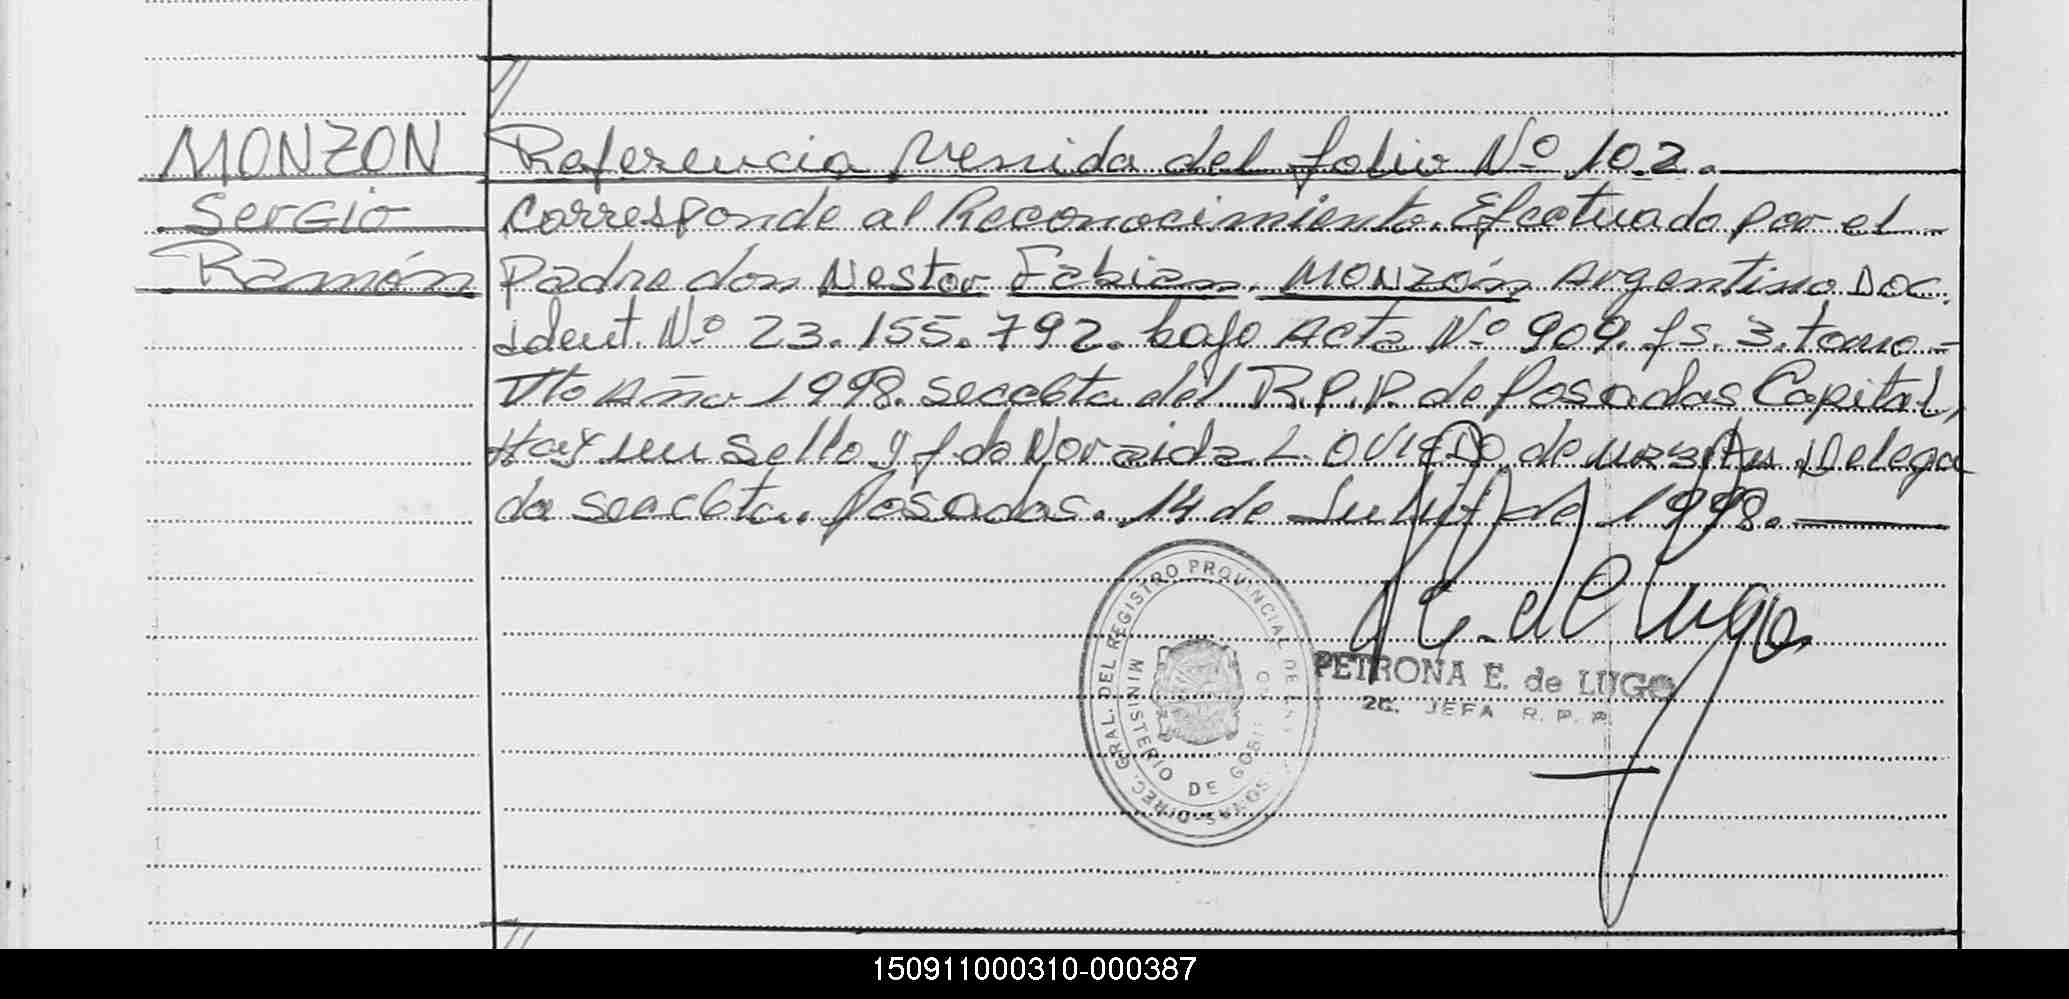 MONZON
Sergio
Ramón
Referencia Venida del folio Nº 102.
Corresponde al Reconocimiento. Efectuado por el
Padre don Nestor Fabian. MONZón Argentino Doc.
ident. Nº 23.155.792. bajo Acta Nº 909. fs. 3. tomo -
Año 1998. seccbta del R.P.P. de Posadas Capital,
Hay un sello y f.do Noraida L. OVIEDO de Delega
da seccbta. Posadas. 14 de Julio de 1998.
P.E. de Lugo
PETRONA E. de LUGO
2ª. JEFA R. P. P.
DIREC. GRAL. DEL REGISTRO PROVINCIAL DE LAS PERSONAS
MINISTERIO DE GOBIERNO
150911000310-000387